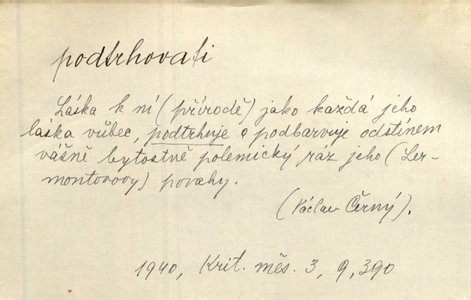 podtrhovati
Láska k ní (přírodě) jako každá jeho
láska vůbec, podtrhuje a podbarvuje odstínem
vášně bytostně polemický ráz jeho (Ler-
montovovy) povahy.
(Václav Černý).
1940, Krit. měs. 3, 9, 390